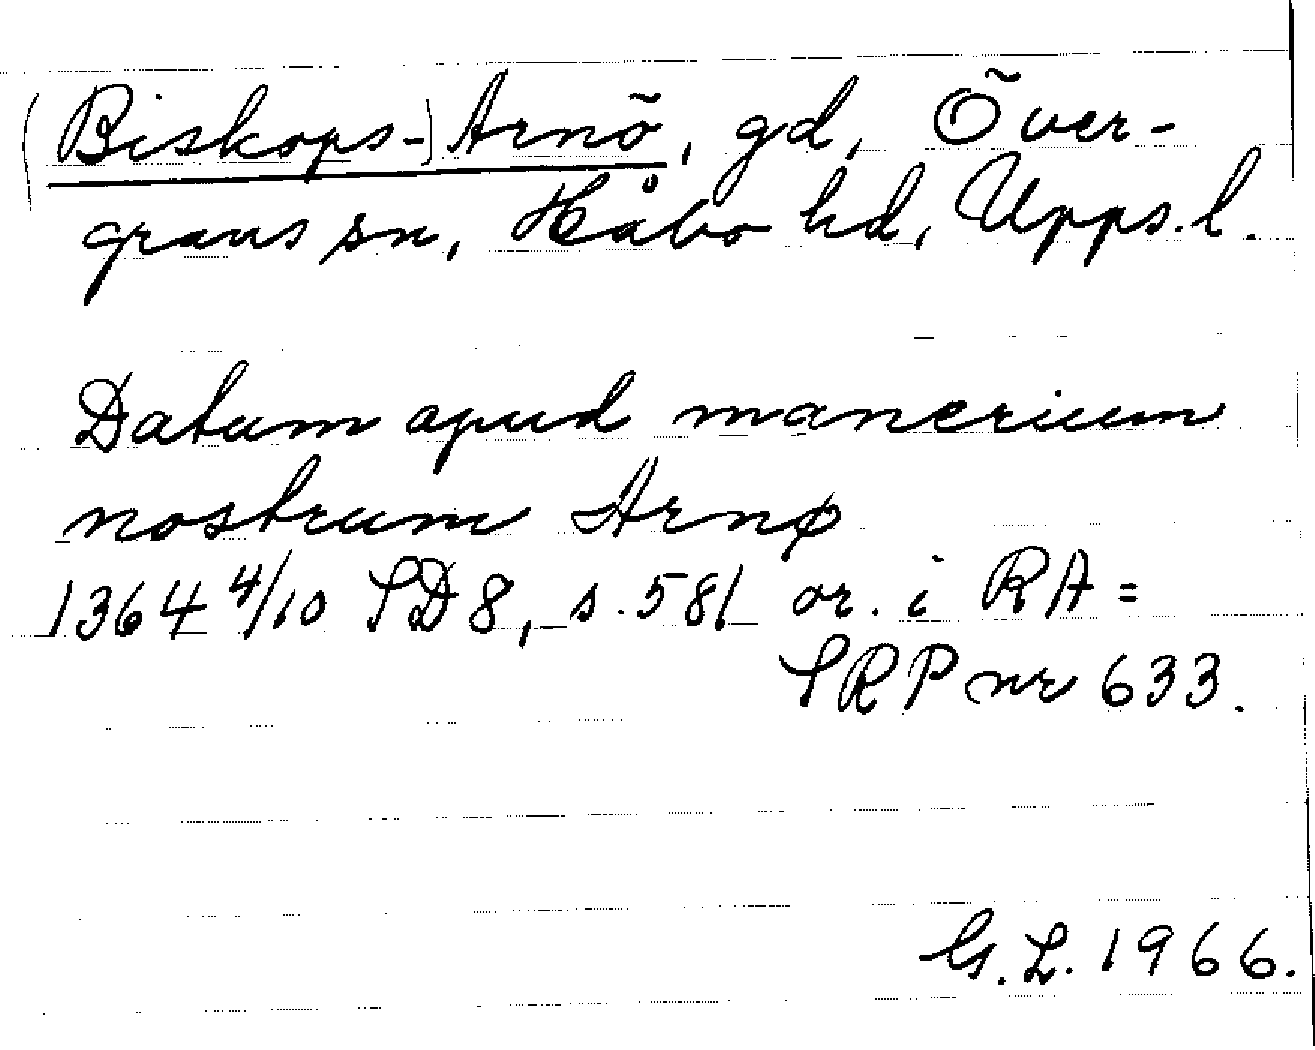 (Biskops-)Arnö, gd, Över-
grans sn, Håbo hd, Upps.l.
Datum apud manerium
nostrum Arnø
1364 4/10 SD 8, s. 581 or. i RA =
SRP nr 633.
G. L. 1966.